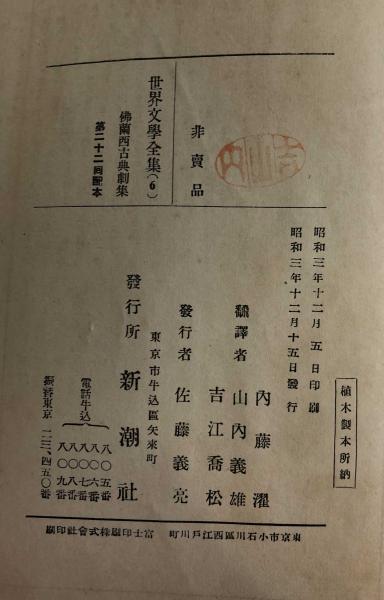 植木製本所納
昭和三年十二月五日印刷
昭和三年十二月十五日發行
非賣品
世界文學全集(6)
佛蘭西古典劇集
第二十二回配本
內藤濯
飜譯者 山內義雄
吉江喬松
發行者 佐藤義亮
東京市牛込區矢來町
發行所 新潮社
電話牛込
八〇五番
八〇六番
八〇七番
八〇八番
八〇九番
振替東京 一二三、四五〇番
東京市小石川區西江戶川町 富士印刷株式會社印刷